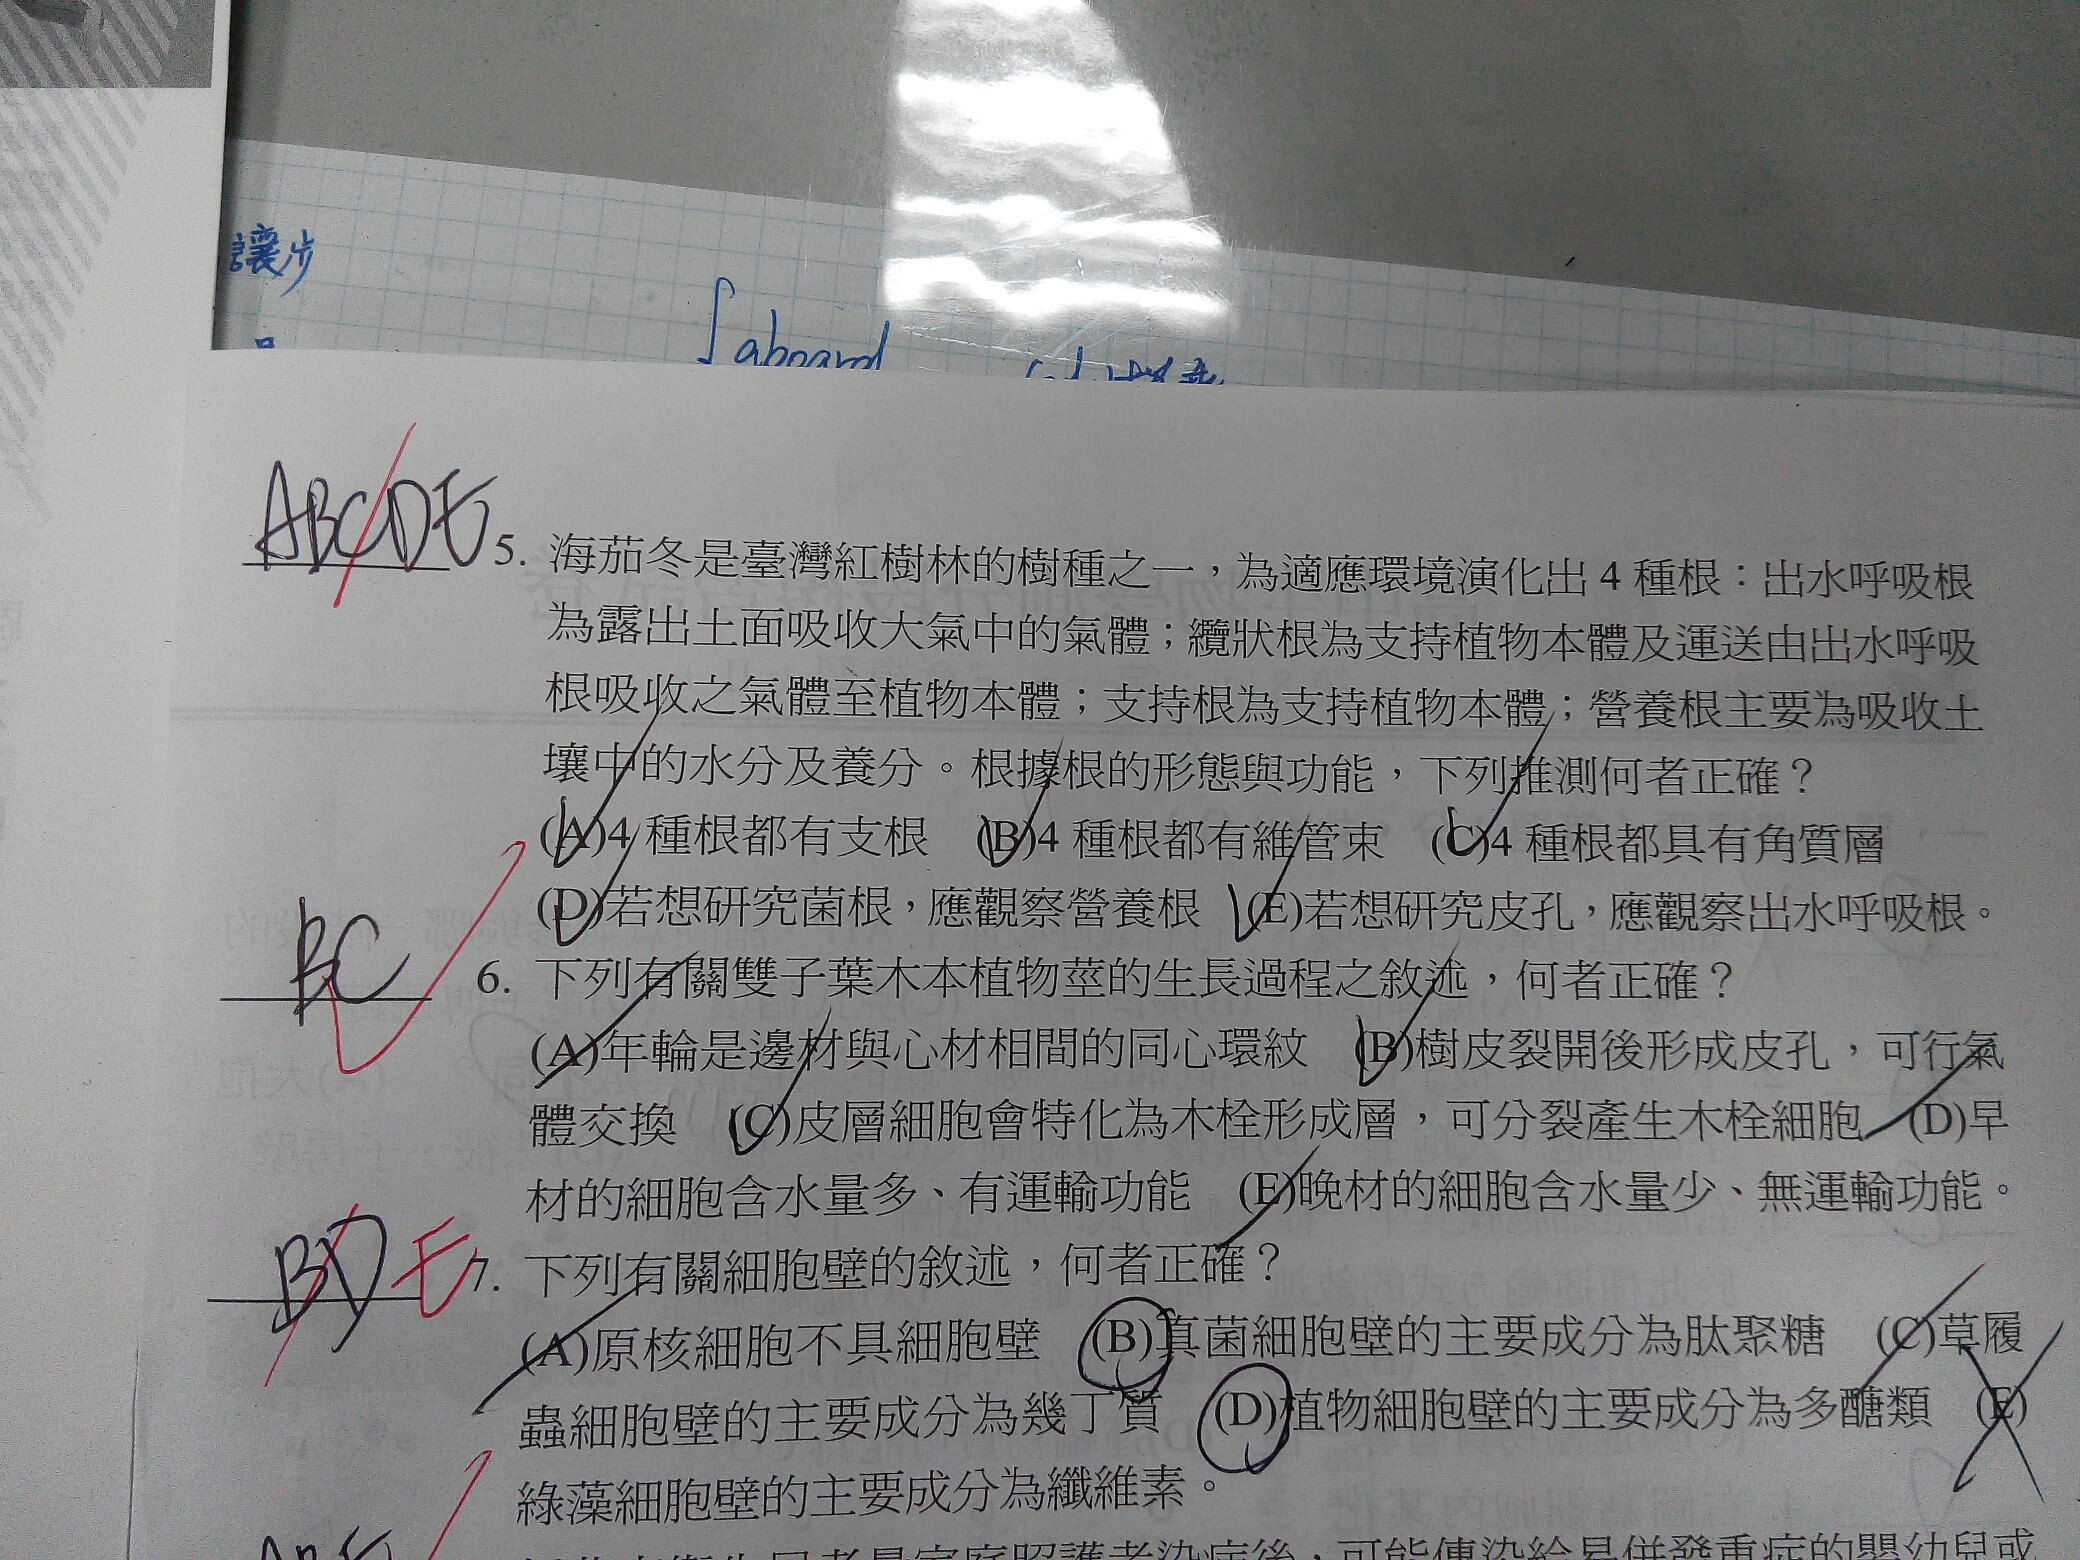 讓步
aboard
ABCDE
5. 海茄冬是臺灣紅樹林的樹種之一，為適應環境演化出 4 種根：出水呼吸根
為露出土面吸收大氣中的氣體；纜狀根為支持植物本體及運送由出水呼吸
根吸收之氣體至植物本體；支持根為支持植物本體；營養根主要為吸收土
壤中的水分及養分。根據根的形態與功能，下列推測何者正確？
(A)4 種根都有支根 (B)4 種根都有維管束 (C)4 種根都具有角質層
(D)若想研究菌根，應觀察營養根 (E)若想研究皮孔，應觀察出水呼吸根。
BC
6. 下列有關雙子葉木本植物莖的生長過程之敘述，何者正確？
(A)年輪是邊材與心材相間的同心環紋 (B)樹皮裂開後形成皮孔，可行氣
體交換 (C)皮層細胞會特化為木栓形成層，可分裂產生木栓細胞 (D)早
材的細胞含水量多、有運輸功能 (E)晚材的細胞含水量少、無運輸功能。
BDE
7. 下列有關細胞壁的敘述，何者正確？
(A)原核細胞不具細胞壁 (B)真菌細胞壁的主要成分為肽聚糖 (C)草履
蟲細胞壁的主要成分為幾丁質 (D)植物細胞壁的主要成分為多醣類 (E)
綠藻細胞壁的主要成分為纖維素。